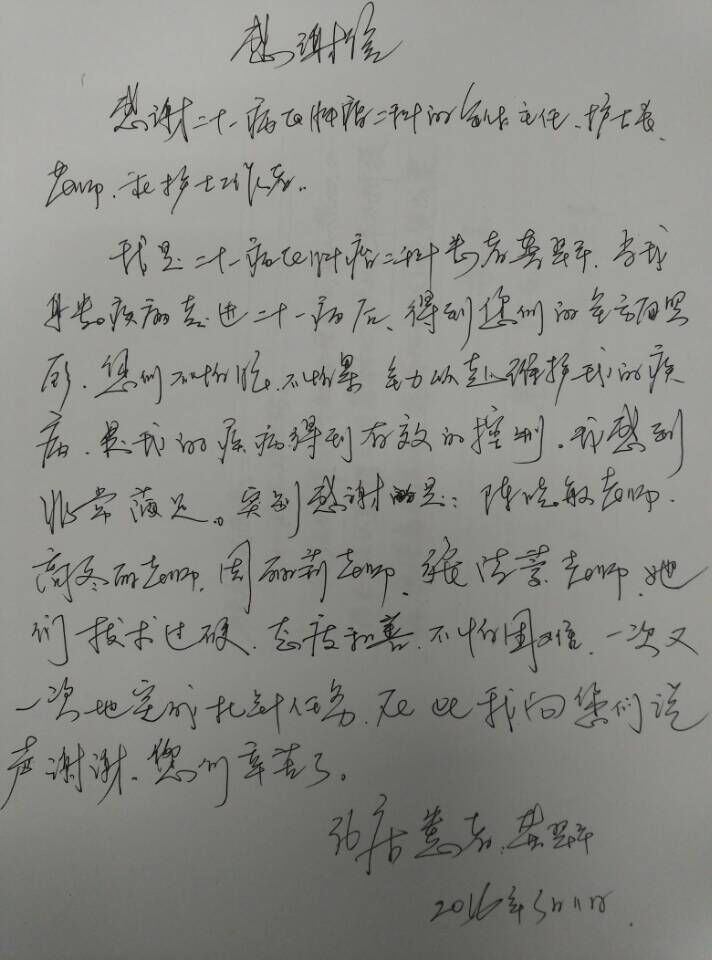 感谢信
感谢二十一病区肿瘤二科的全体主任、护士长、
老师、和护士工作者。
我是二十一病区肿瘤二科患者 当我
身患疾病走进二十一病后、得到您们的全方面照
顾、您们不怕脏、不怕累 全力以赴维护我的疾
病、是我的疾病得到有效的控制。我感到
非常满足。特别感谢的是：陈晓敏老师、
高冬丽老师、周丽莉老师、张洁 老师、她
们技术过硬、态度和善、不怕困难、一次又
一次地完成扎针任务、在此我向您们说
声谢谢、您们辛苦了。
患者
2016年3月11日